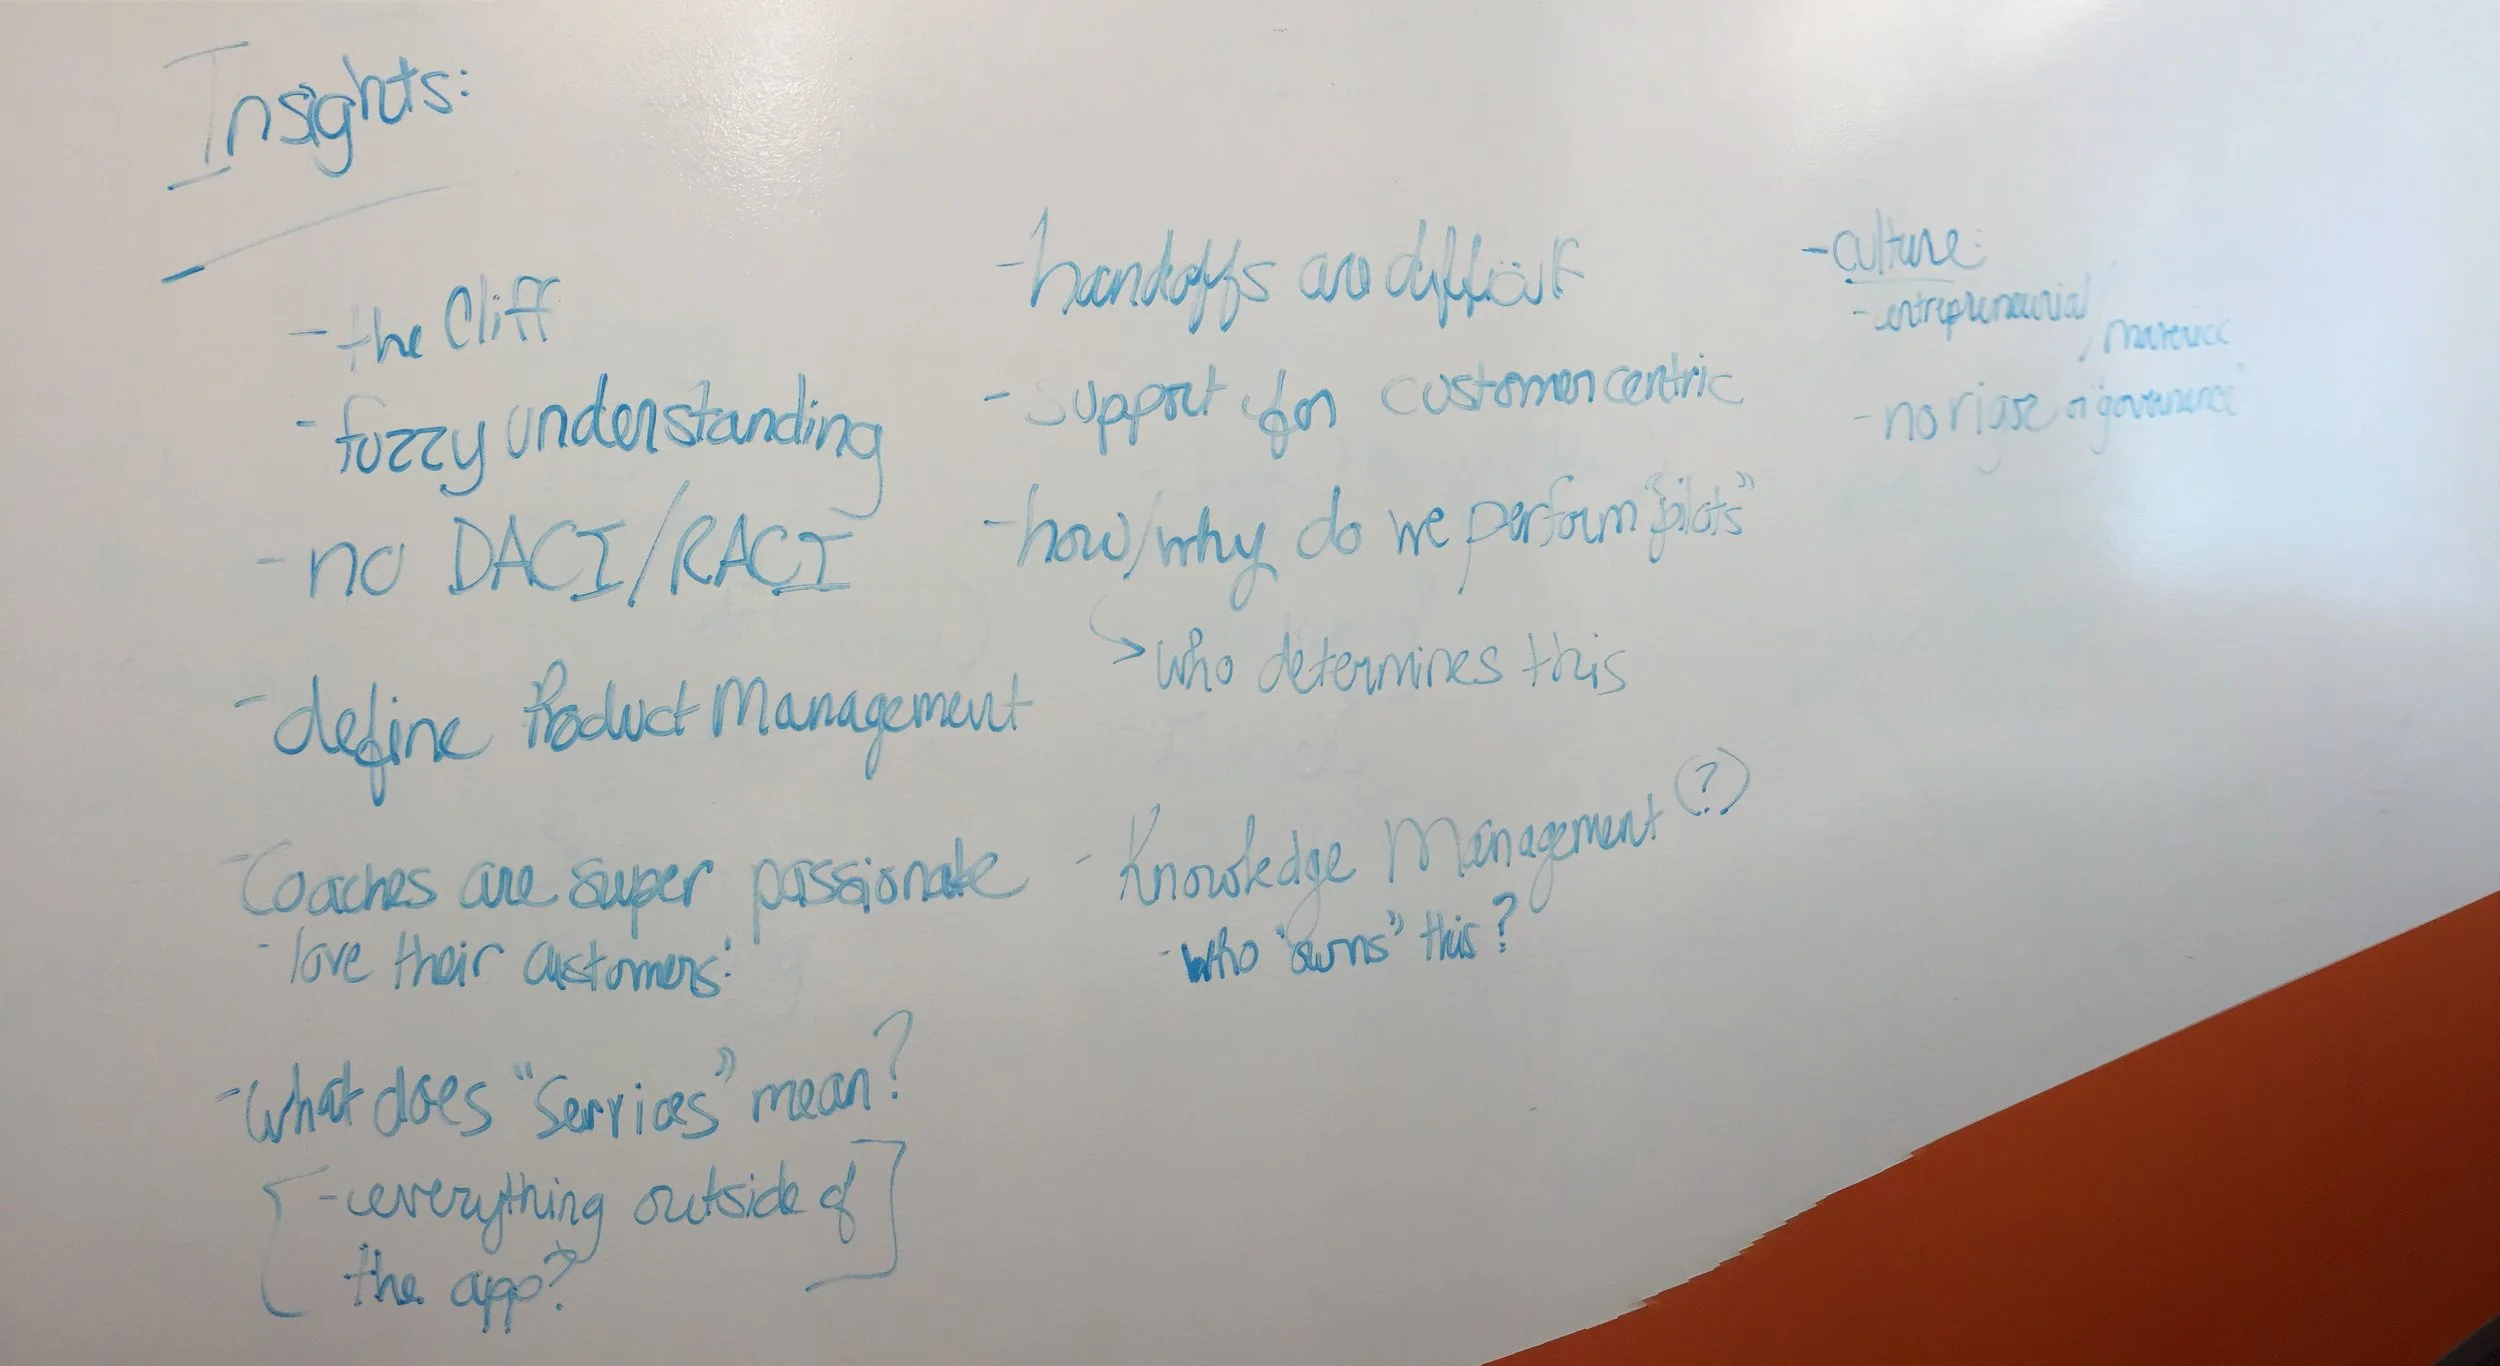 Insights:
- the Cliff
- fuzzy understanding
- no DACI/RACI
- define Product Management
- Coaches are super passionate
- love their customers!
- What does "Services" mean?
[- everything outside of
the app?]
- handoffs are difficult
- support for customer centric
- how/why do we perform "pilots"
→ who determines this
- Knowledge Management (?)
- who "owns" this?
- culture:
- entrepreneurial/
maverick
- no rigor or "governance"